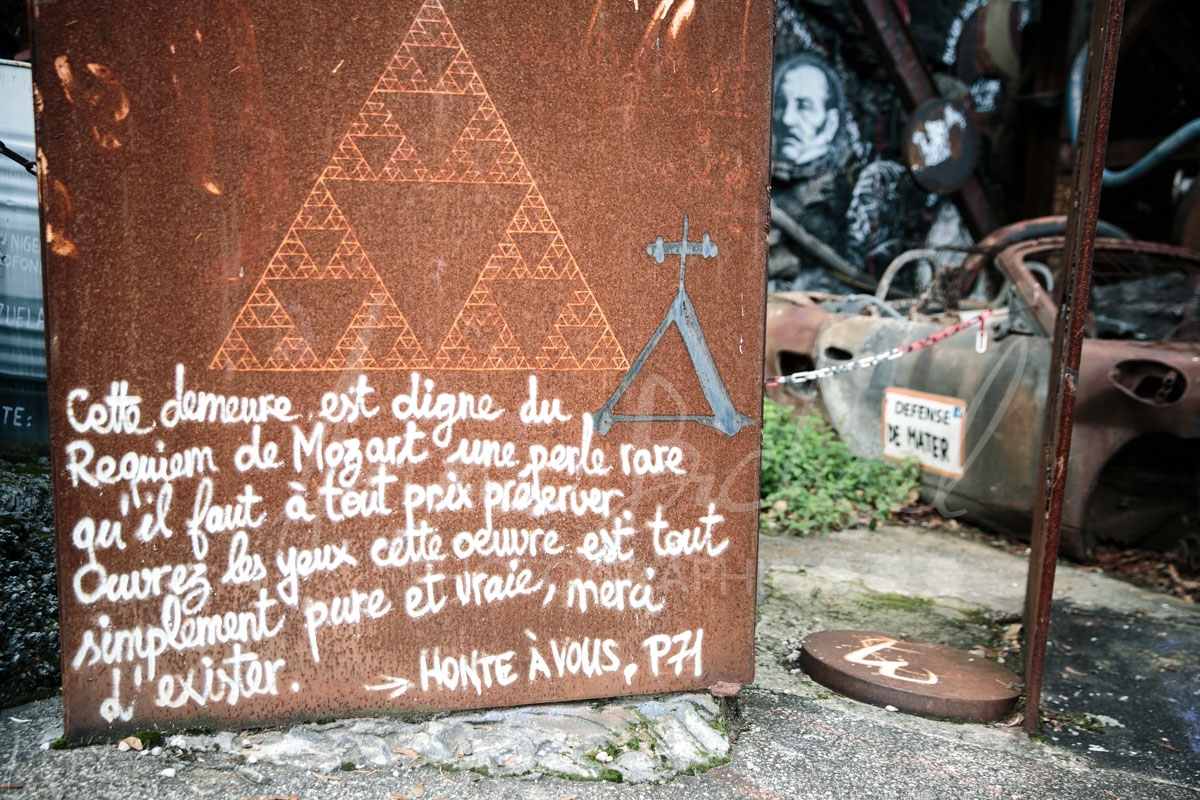 Cette demeure est digne du
Requiem de Mozart une perle rare
qu'il faut à tout prix préserver.
Ouvrez les yeux cette oeuvre est tout
simplement pure et vraie, merci
d'exister.
→ HONTE À VOUS, P71
DEFENSE
DE MATER
NIGE
ZUELA
TE: